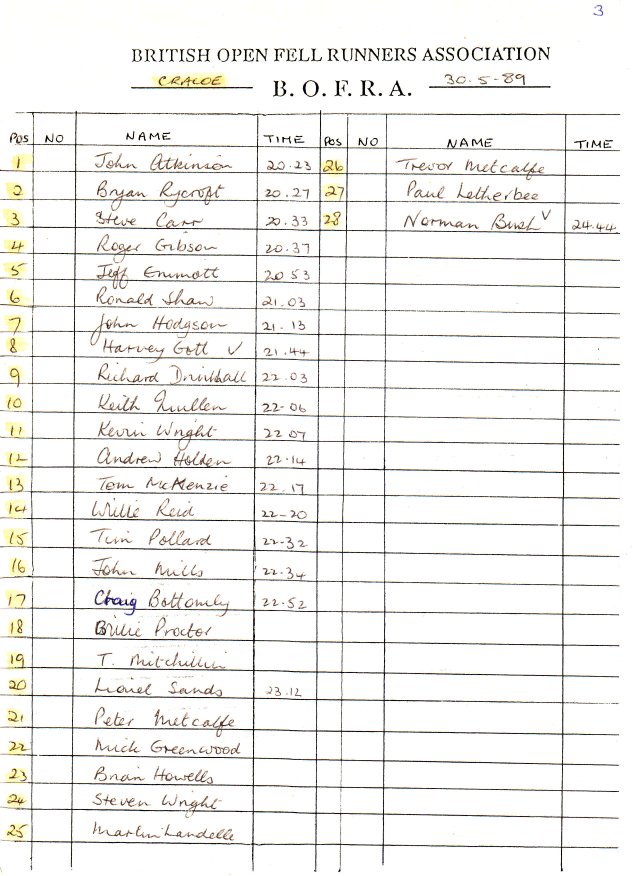 3
BRITISH OPEN FELL RUNNERS ASSOCIATION
CRACOE B. O. F. R. A. 30.5-89
POS NO NAME TIME POS NO NAME TIME
1 John Atkinson 20.23 26 Trevor Metcalfe
2 Bryan Rycroft 20.27 27 Paul Letherbee
3 Steve Carr 20.33 28 Norman Bush V 24.44
4 Roger Gibson 20.37
5 Jeff Emmott 20 53
6 Ronald Shaw 21.03
7 John Hodgson 21.13
8 Harvey Gott V 21.44
9 Richard Drinkhall 22.03
10 Keith 22-06
11 Kevin Wright 22 07
12 Andrew Holden 22.14
13 Tom McKenzie 22.17
14 Willie Reid 22-20
15 Tim Pollard 22-32
16 John Mills 22.34
17 Craig Bottomly 22-52
18 Billie Proctor
19 T. Mitchillin
20 Lionel Sands 23.12
21 Peter Metcalfe
22 Mick Greenwood
23 Brian Howells
24 Steven Wright
25 Martin Landelle